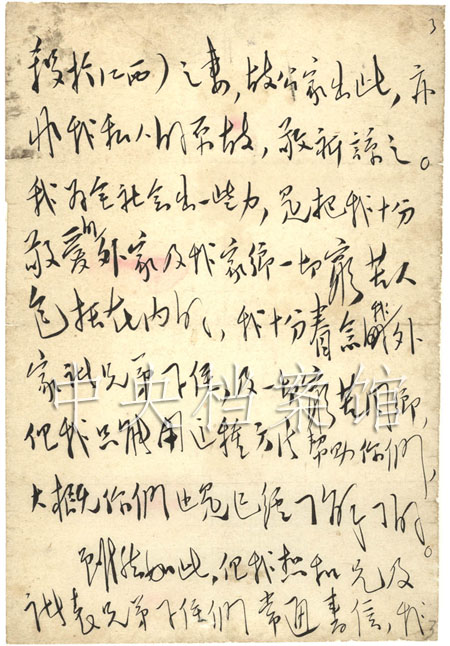 3
殁於江西)之妻,故公家出此,亦
非我私人的原故,敬祈諒之。
我为全社会出一些力,是把我十分
敬愛的外家及我家鄉一切窮苦人
包括在内的,我十分眷念我外
家諸兄弟子侄,及一切窮苦同鄉,
中央档案馆
但我只能用这種方法幫助你們,
大概你們也是已經了解了的。
雖然如此,但我想和兄及
諸表兄弟子侄們常通書信,我